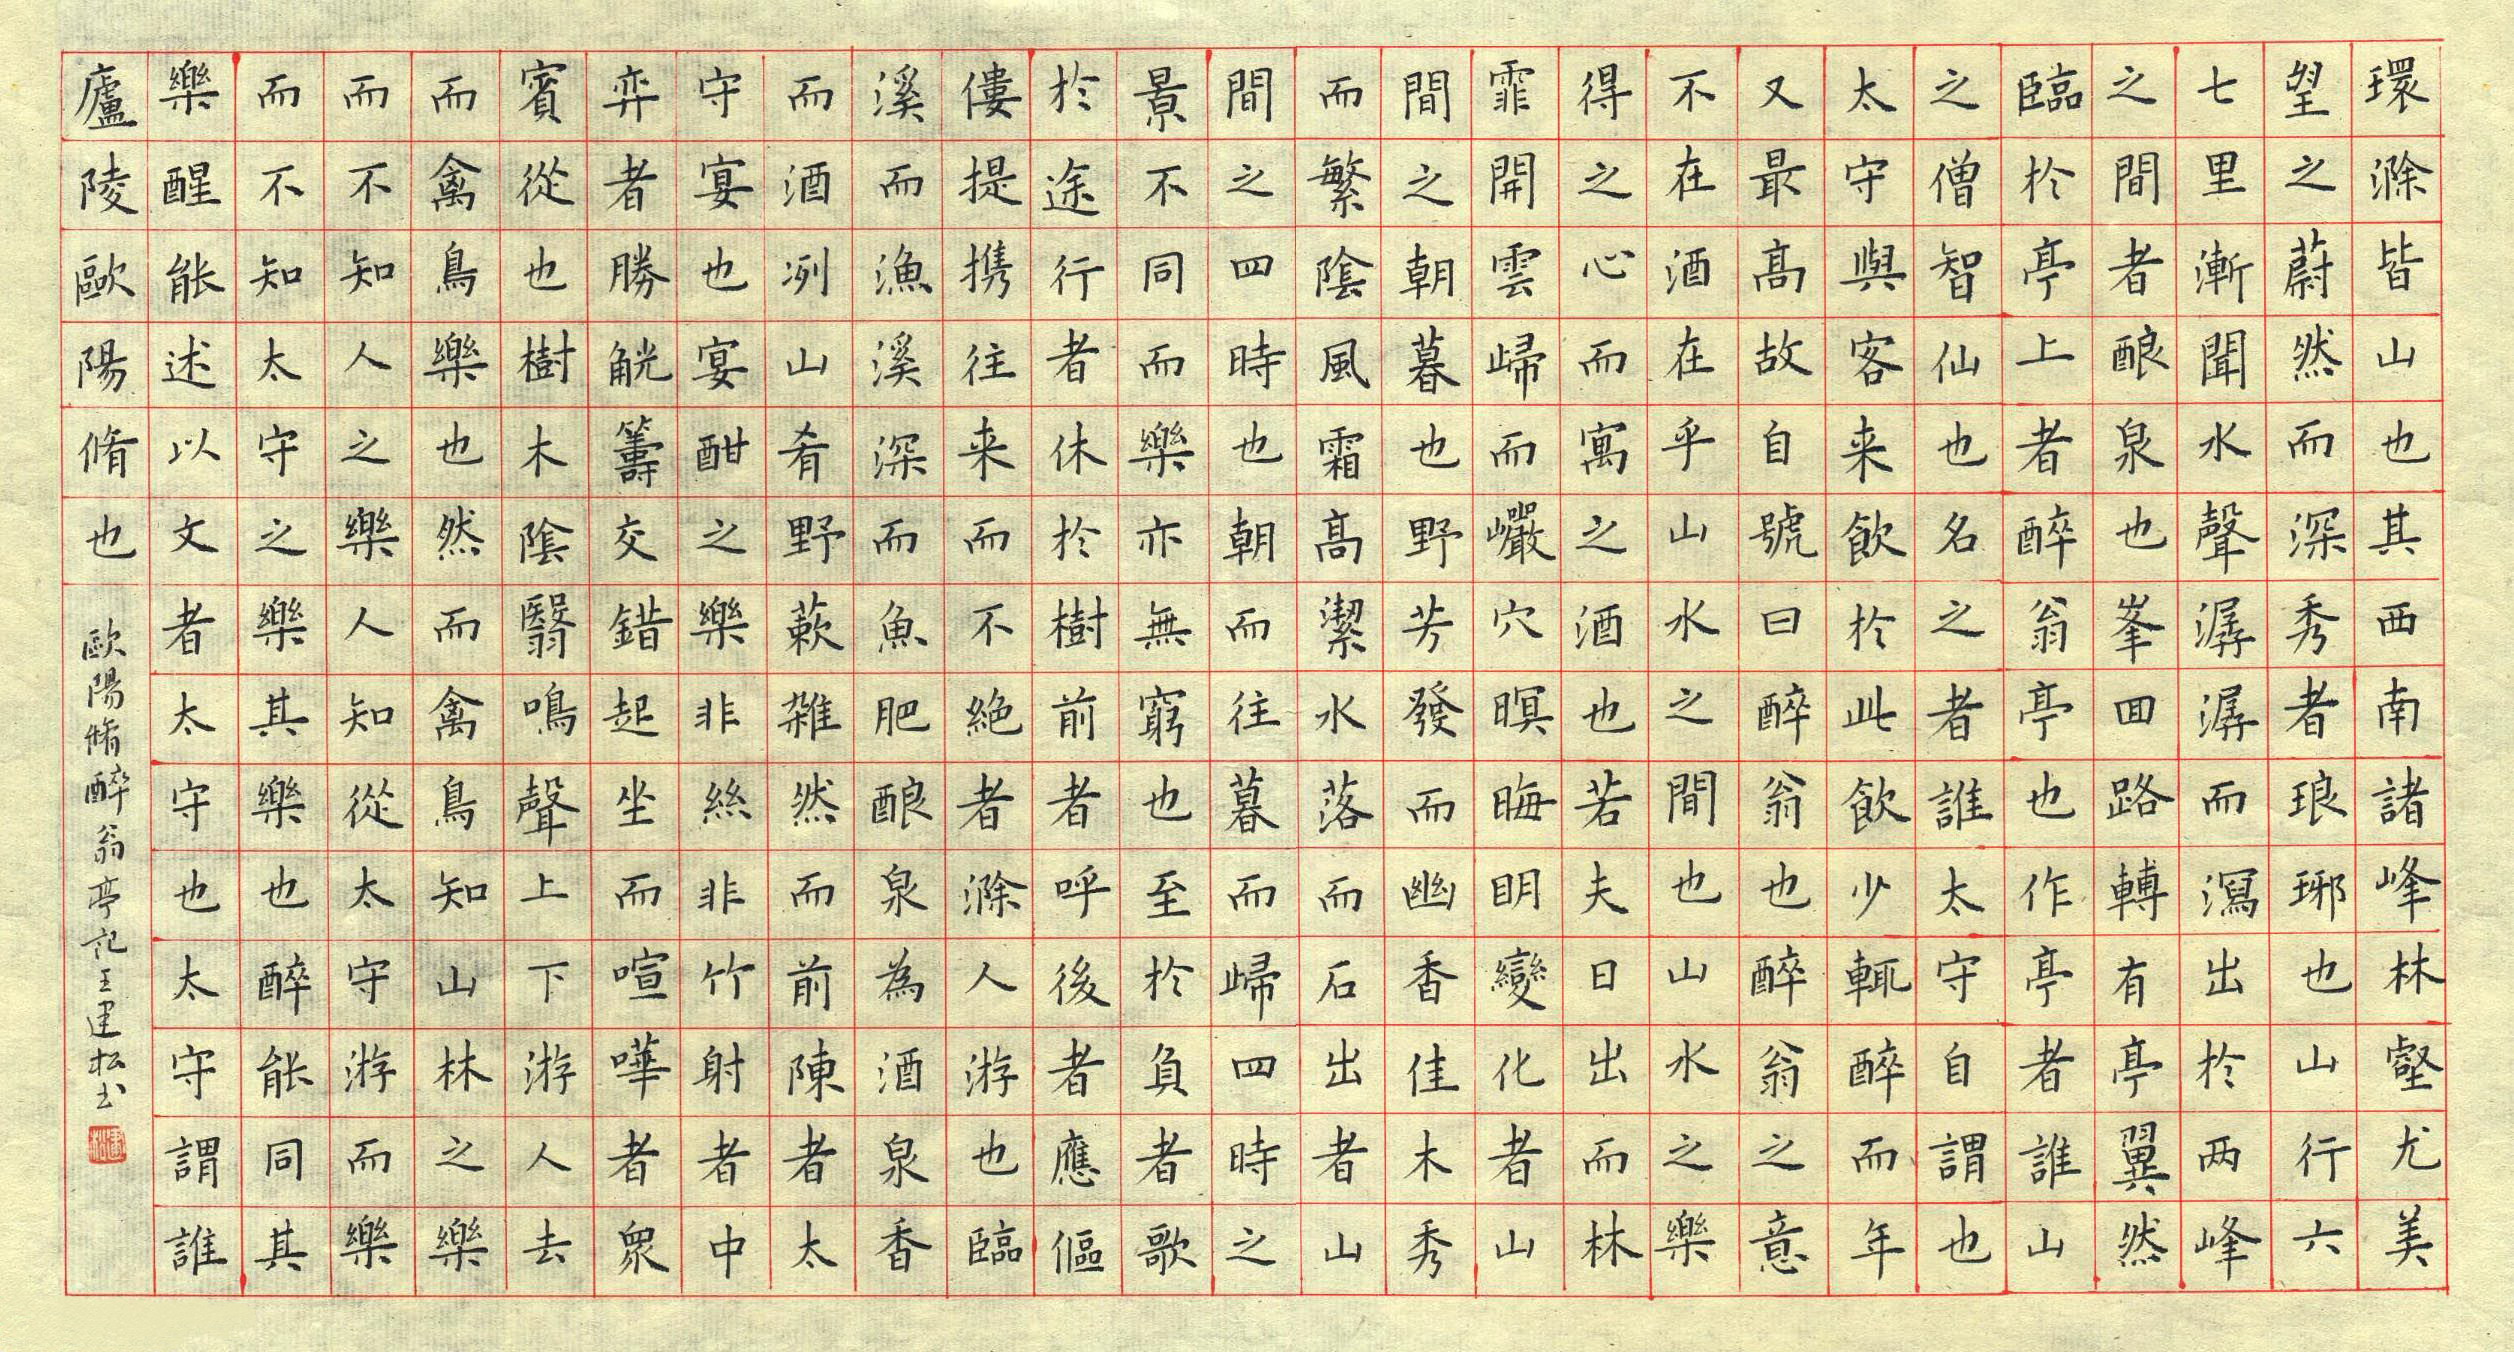 環滁皆山也其西南諸峰林壑尤美
望之蔚然而深秀者琅琊也山行六
七里漸聞水聲潺潺而瀉出於两峰
之間者酿泉也峯回路轉有亭翼然
臨於亭上者醉翁亭也作亭者誰山
之僧智仙也名之者誰太守自謂也
太守與客来飲於此飲少輒醉而年
又最高故自號曰醉翁也醉翁之意
不在酒在乎山水之間也山水之樂
得之心而寓之酒也若夫日出而林
霏開雲歸而巖穴暝晦明變化者山
間之朝暮也野芳發而幽香佳木秀
而繁陰風霜高潔水落而石出者山
間之四時也朝而往暮而歸四時之
景不同而樂亦無窮也至於負者歌
於途行者休於樹前者呼後者應傴
僂提携往来而不絕者滁人游也臨
溪而漁溪深而魚肥酿泉為酒泉香
而酒冽山肴野蔌雜然而前陳者太
守宴也宴酣之樂非絲非竹射者中
弈者勝觥籌交錯起坐而喧嘩者眾
賓從也樹木陰翳鳴聲上下游人去
而禽鳥樂也然而禽鳥知山林之樂
而不知人之樂人知從太守游而樂
而不知太守之樂其樂也醉能同其
樂醒能述以文者太守也太守謂誰
廬陵歐陽脩也
歐陽脩醉翁亭記王建松书
建松